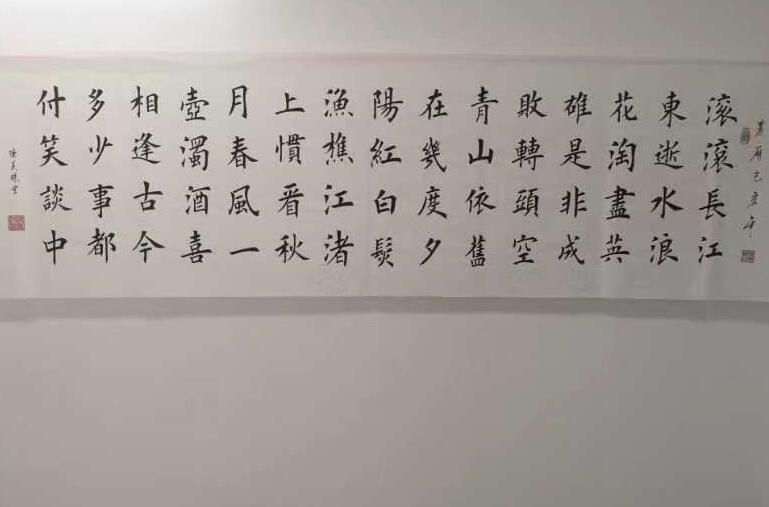 農曆己亥年
滚滾長江
東逝水浪
花淘盡英
雄是非成
敗轉頭空
青山依舊
在幾度夕
陽紅白髮
漁樵江渚
上慣看秋
月春風一
壺濁酒喜
相逢古今
多少事都
付笑談中